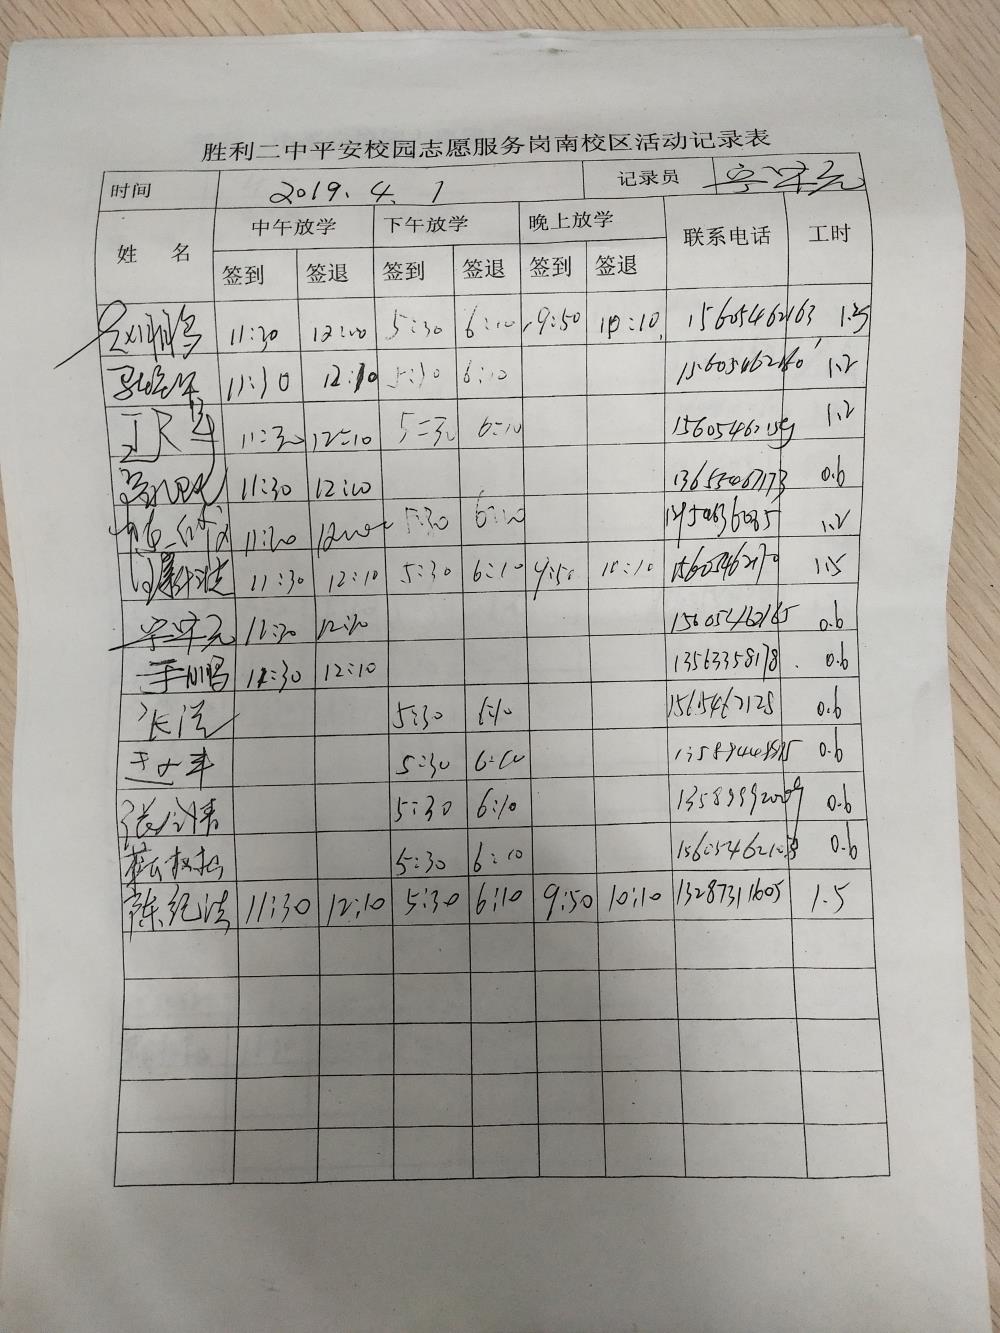 胜利二中平安校园志愿服务岗南校区活动记录表
时间 2019.4.1 记录员 宁守元
姓 名 中午放学 下午放学 晚上放学 联系电话 工时
签到 签退 签到 签退 签到 签退
11:30 12:10 5:30 6:10 9:50 10:10 15605462163 1.5
11:30 12:10 5:30 6:10 15605462160 1.2
11:30 12:10 5:30 6:10 1.2
11:30 12:10 13655467173 0.6
5:30 6:10 1.2
11:30 12:10 5:30 6:10 9:50 10:10 15605462170 1.5
宁守元 11:30 12:10 15605462165 0.6
于鹏 11:30 12:10 13563358178 0.6
张滨 5:30 6:10 0.6
5:30 6:10 0.6
5:30 6:10 13589992009 0.6
5:30 6:10 0.6
陈纪法 11:30 12:10 5:30 6:10 9:50 10:10 13287311605 1.5